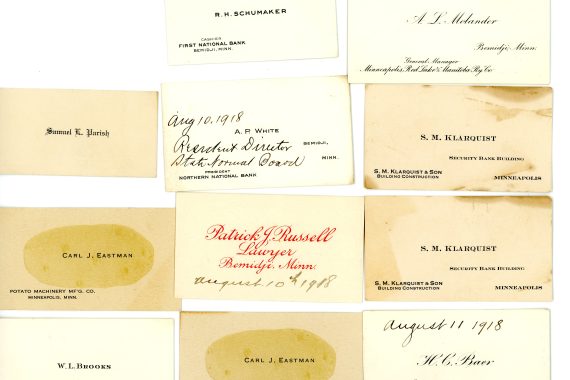 R. H. SCHUMAKER
CASHIER
FIRST NATIONAL BANK
BEMIDJI, MINN.
A. L. Molander
Bemidji, Minn.
General Manager
Minneapolis, Red Lake & Manitoba Ry Co
Samuel L. Parish
Aug 10, 1918
A. P. WHITE
Resident Director
BEMIDJI,
State Normal Board
MINN.
PRESIDENT
NORTHERN NATIONAL BANK
S. M. KLARQUIST
SECURITY BANK BUILDING
S. M. KLARQUIST & SON
BUILDING CONSTRUCTION
MINNEAPOLIS
CARL J. EASTMAN
POTATO MACHINERY M'F'G. CO.
MINNEAPOLIS, MINN.
Patrick J. Russell
Lawyer
Bemidji, Minn.
August 10th 1918
S. M. KLARQUIST
SECURITY BANK BUILDING
S. M. KLARQUIST & SON
BUILDING CONSTRUCTION
MINNEAPOLIS
W. L. BROOKS
CARL J. EASTMAN
August 11 1918
H. C. Baer